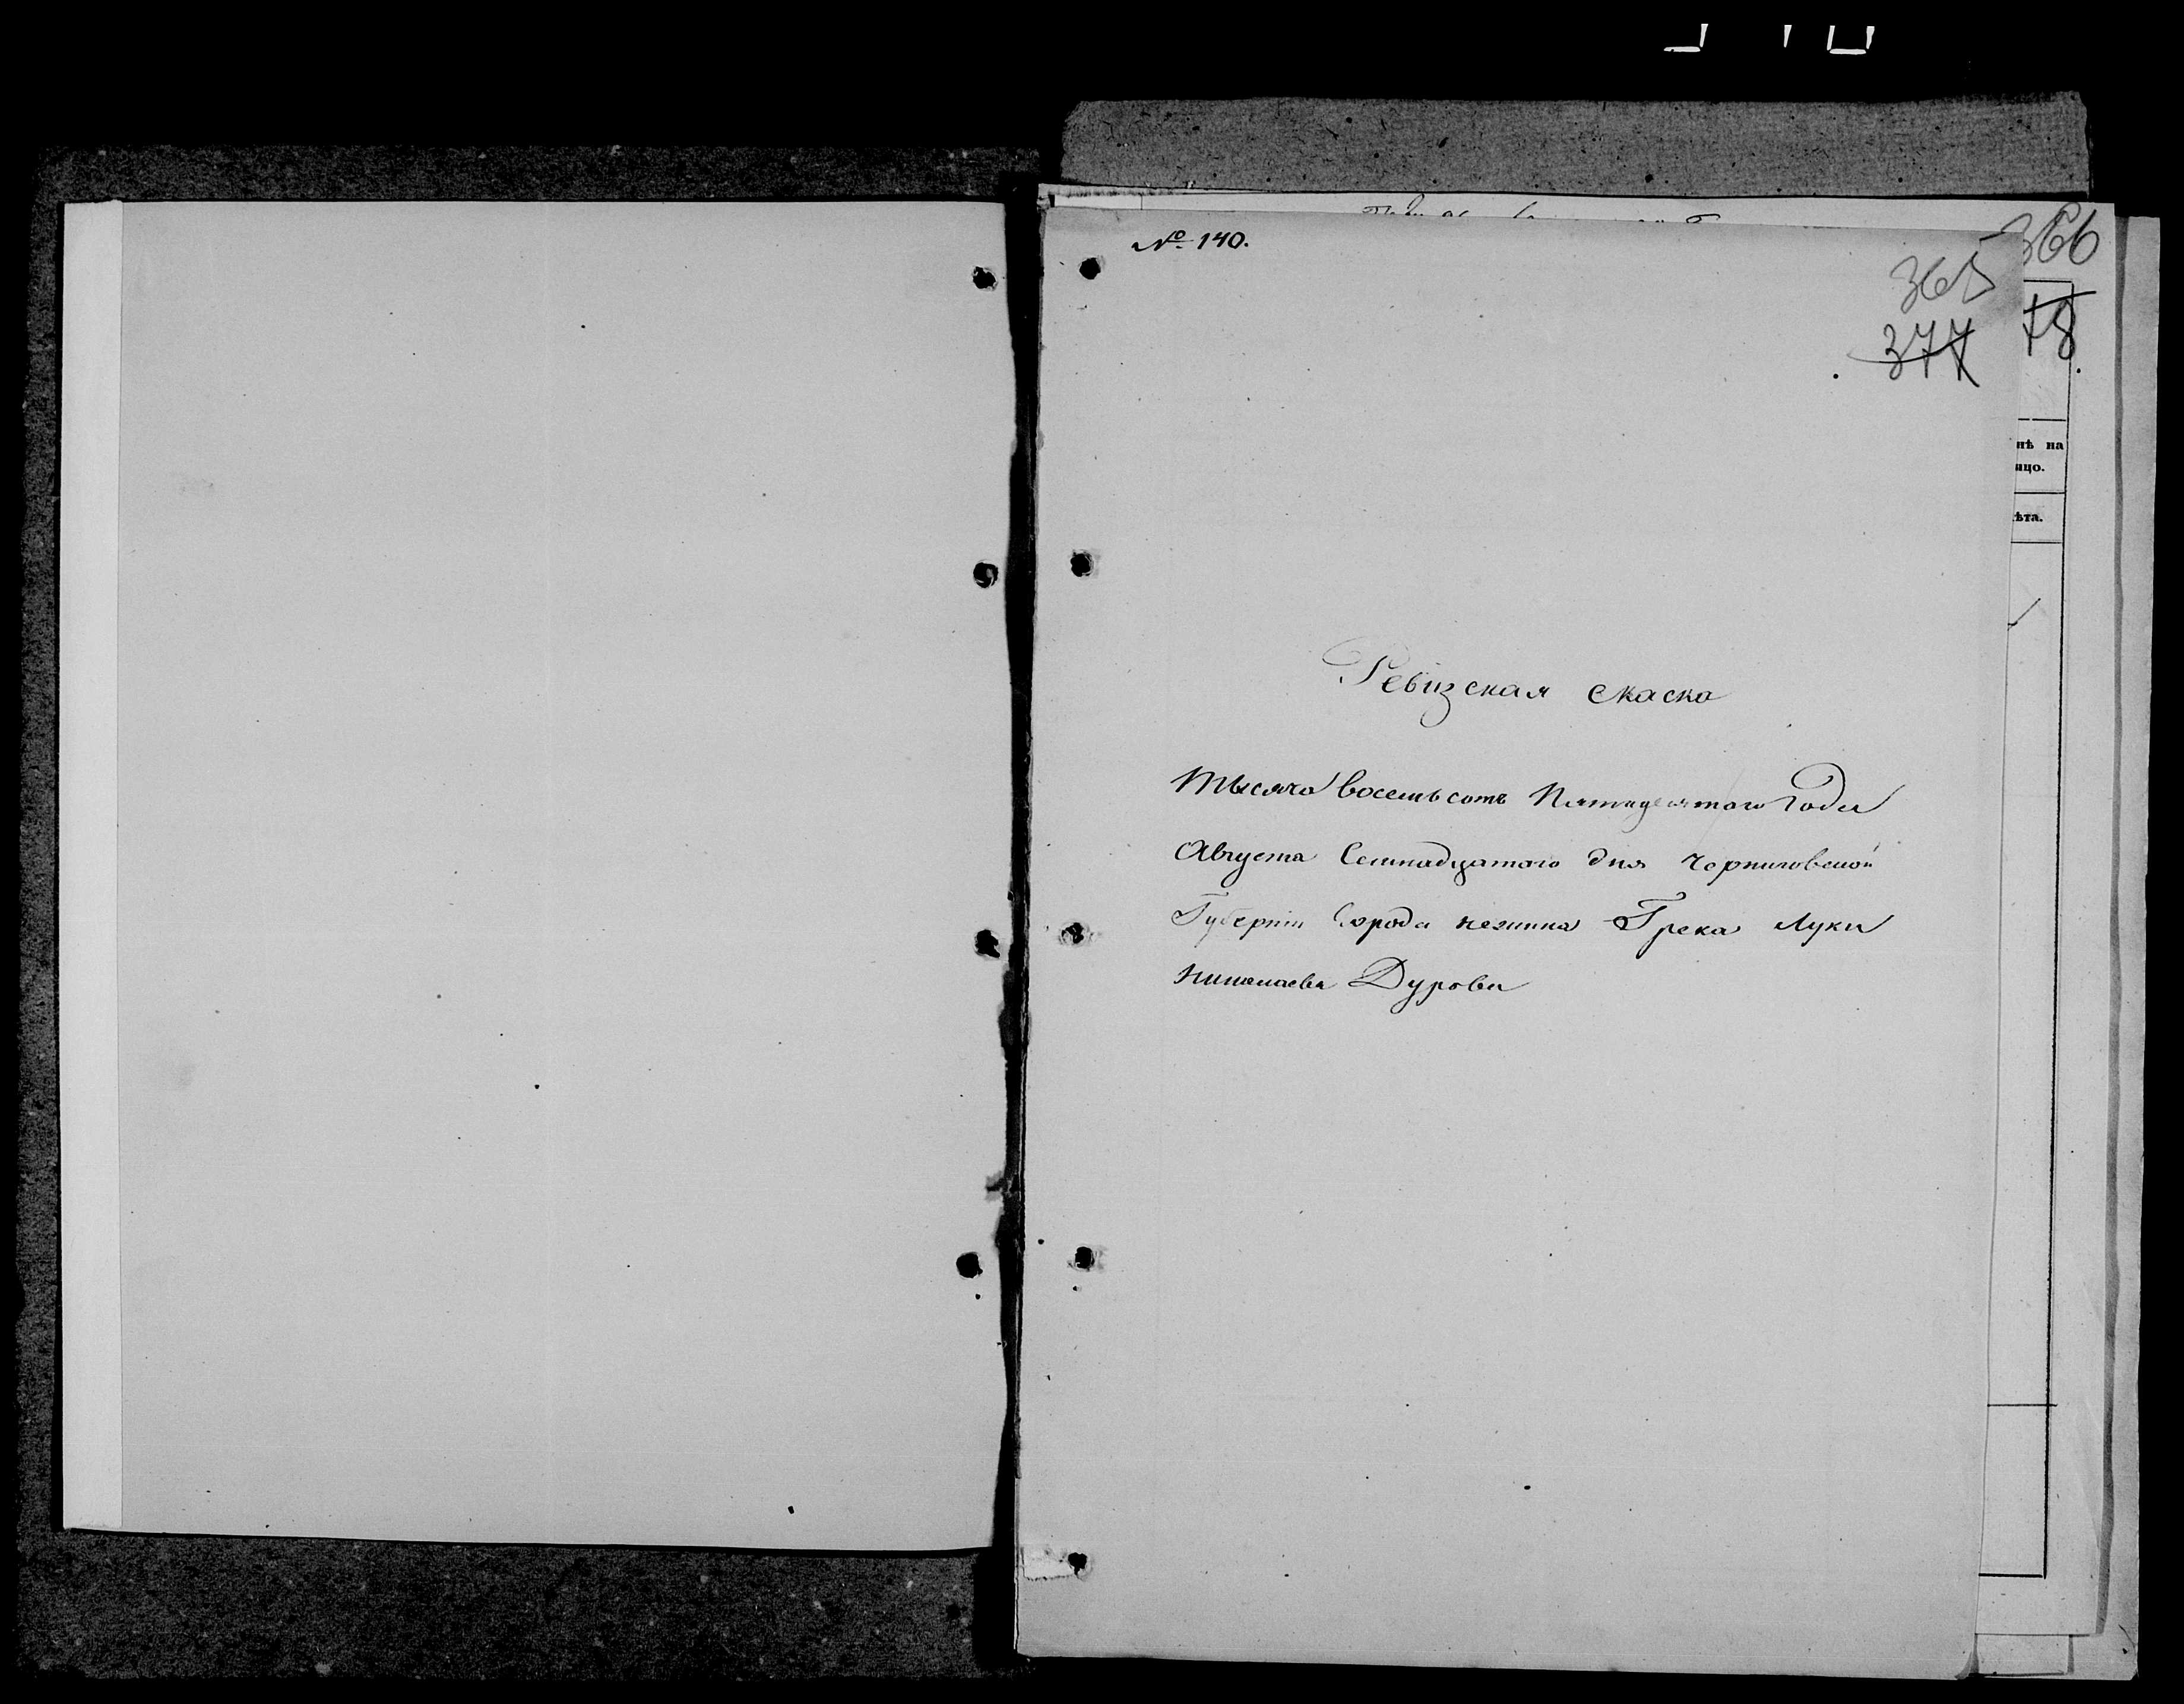 № 140.
366
365
377
78
нѣ на
ицо.
ѣта.
Ревизская скаска
Тысяча восемьсотъ Пятидесятого Года
Августа Семнадцатого дня Черниговской
Губерніи Города нежина Грека Луки
Николаева Дурова